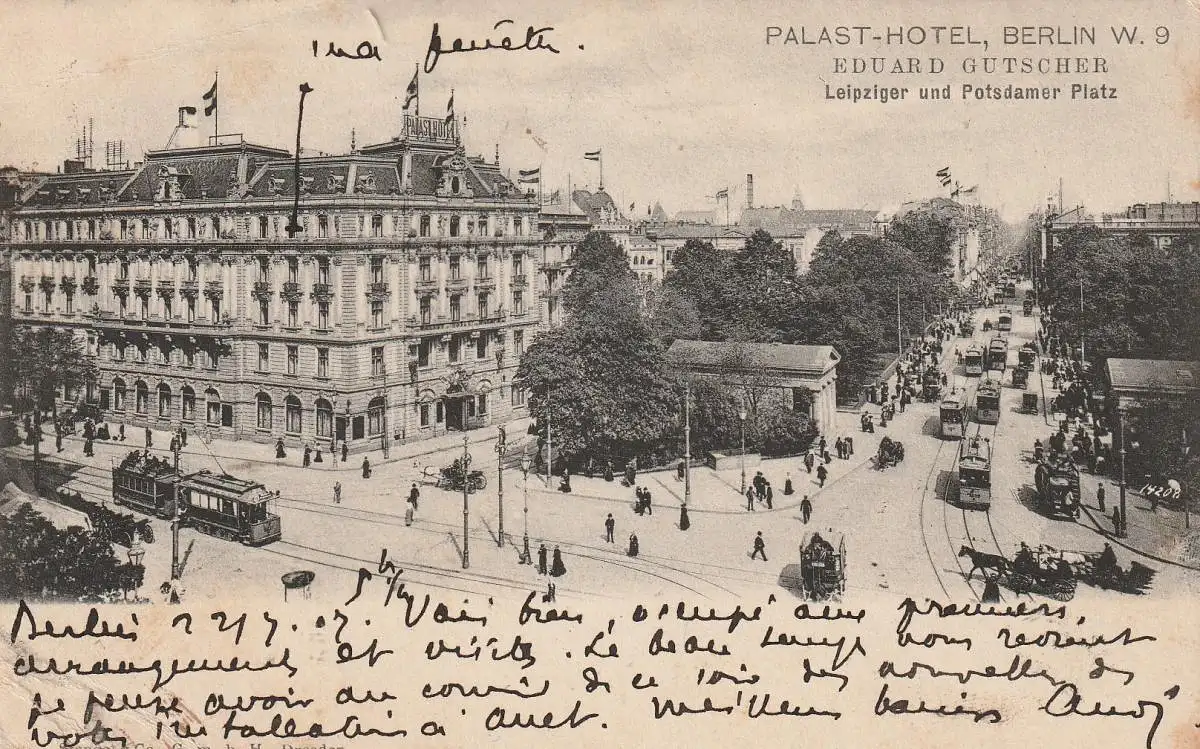 ma fenêtre.
PALAST-HOTEL, BERLIN W. 9
EDUARD GUTSCHER
Leipziger und Potsdamer Platz
PALAST HOTEL
14208
5 h 1/4
Berlin 22/7.07. Vais bien, occupé aux premiers
arrangements et visites. Le beau temps nous revient
Je pense avoir au courrier de ce soir des nouvelles de
votre installation à Anet. Meilleurs baisers
Co. G. m. b. H. Dresden